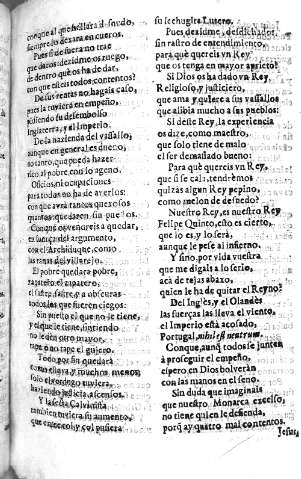 conque al que hallara el
siempre lo dexara en cueros.
Pues si de fuera no trae
que daros, dezidmos os ruego,
de dentro que os ha de dar,
con que esteis todos contentos?
De sus rentas no hagais caso,
pues la tuviera en empeño,
pidiendo su desembolso
Inglaterra, y el Imperio.
De la hazienda del vassallo,
aunque en general es dueño,
no tanto, que pueda hazer
rico al pobre con lo ageno.
Oficios, ni ocupaciones
para todos no ha de averlos:
conque avrà tantos quexosos
quantos queden sin puestos.
Conque os vendreis a quedar,
en fuerça del argumento,
con el Archiduque, como
las ranas del villarejo.
El pobre quedara pobre,
zapatero el zapatero,
el sastre sastre, y a obscuras
todos los que fueren ciegos:
Sin pleito el que no le tiene,
y el que le tiene, sintiendo
no le den otro mayor,
que no tape el gujero.
Todo, por fin quedarà
como oliaya, y muchos menos,
solo el verdugo tuviera,
haziendo justicia, ascensos.
Y la secta Calvinista
tambien tuviera su aumento,
que entre col, y col pusiera
su lechugita Lutero.
Pues dezidme, desdichados,
sin rastro de entendimiento,
para què quereis vn Rey
que os tenga en mayor aprieto?
Si Dios os ha dado vn Rey,
Religioso, y justiciero,
que ama y quiere a sus vassallos
que alibia mucho a sus pueblos:
Si deste Rey, la experiencia
os dize, como maestro,
que solo tiene de malo
el ser demasiado bueno:
Para què quereis vn Rey,
que si se cala, tendremos
quizàs algun Rey pepino,
como melon de desnedo?
Nuestro Rey, es nuestro Rey
Felipe Quinto, esto es cierto,
que lo es, y lo serà,
aunque le pese al infierno.
Y sino, por vida vuestra
que me digais a lo serio,
acà de tejas abaxo,
quien le ha de quitar el Reyno?
Del Inglès, y el Olandès
las fuerças las lleva el viento,
el Imperio està acosado,
Portugal, nihil est neutrum.
Conque, aunq̃ todos se junten
à proseguir el empeño,
espero, en Dios bolverán
con las manos en el seno.
Sin duda que imaginais
que nuestro Monarca excelso,
no tiene quien le defienda,
porq̃ ay quatro mal contentos.
Jesus,